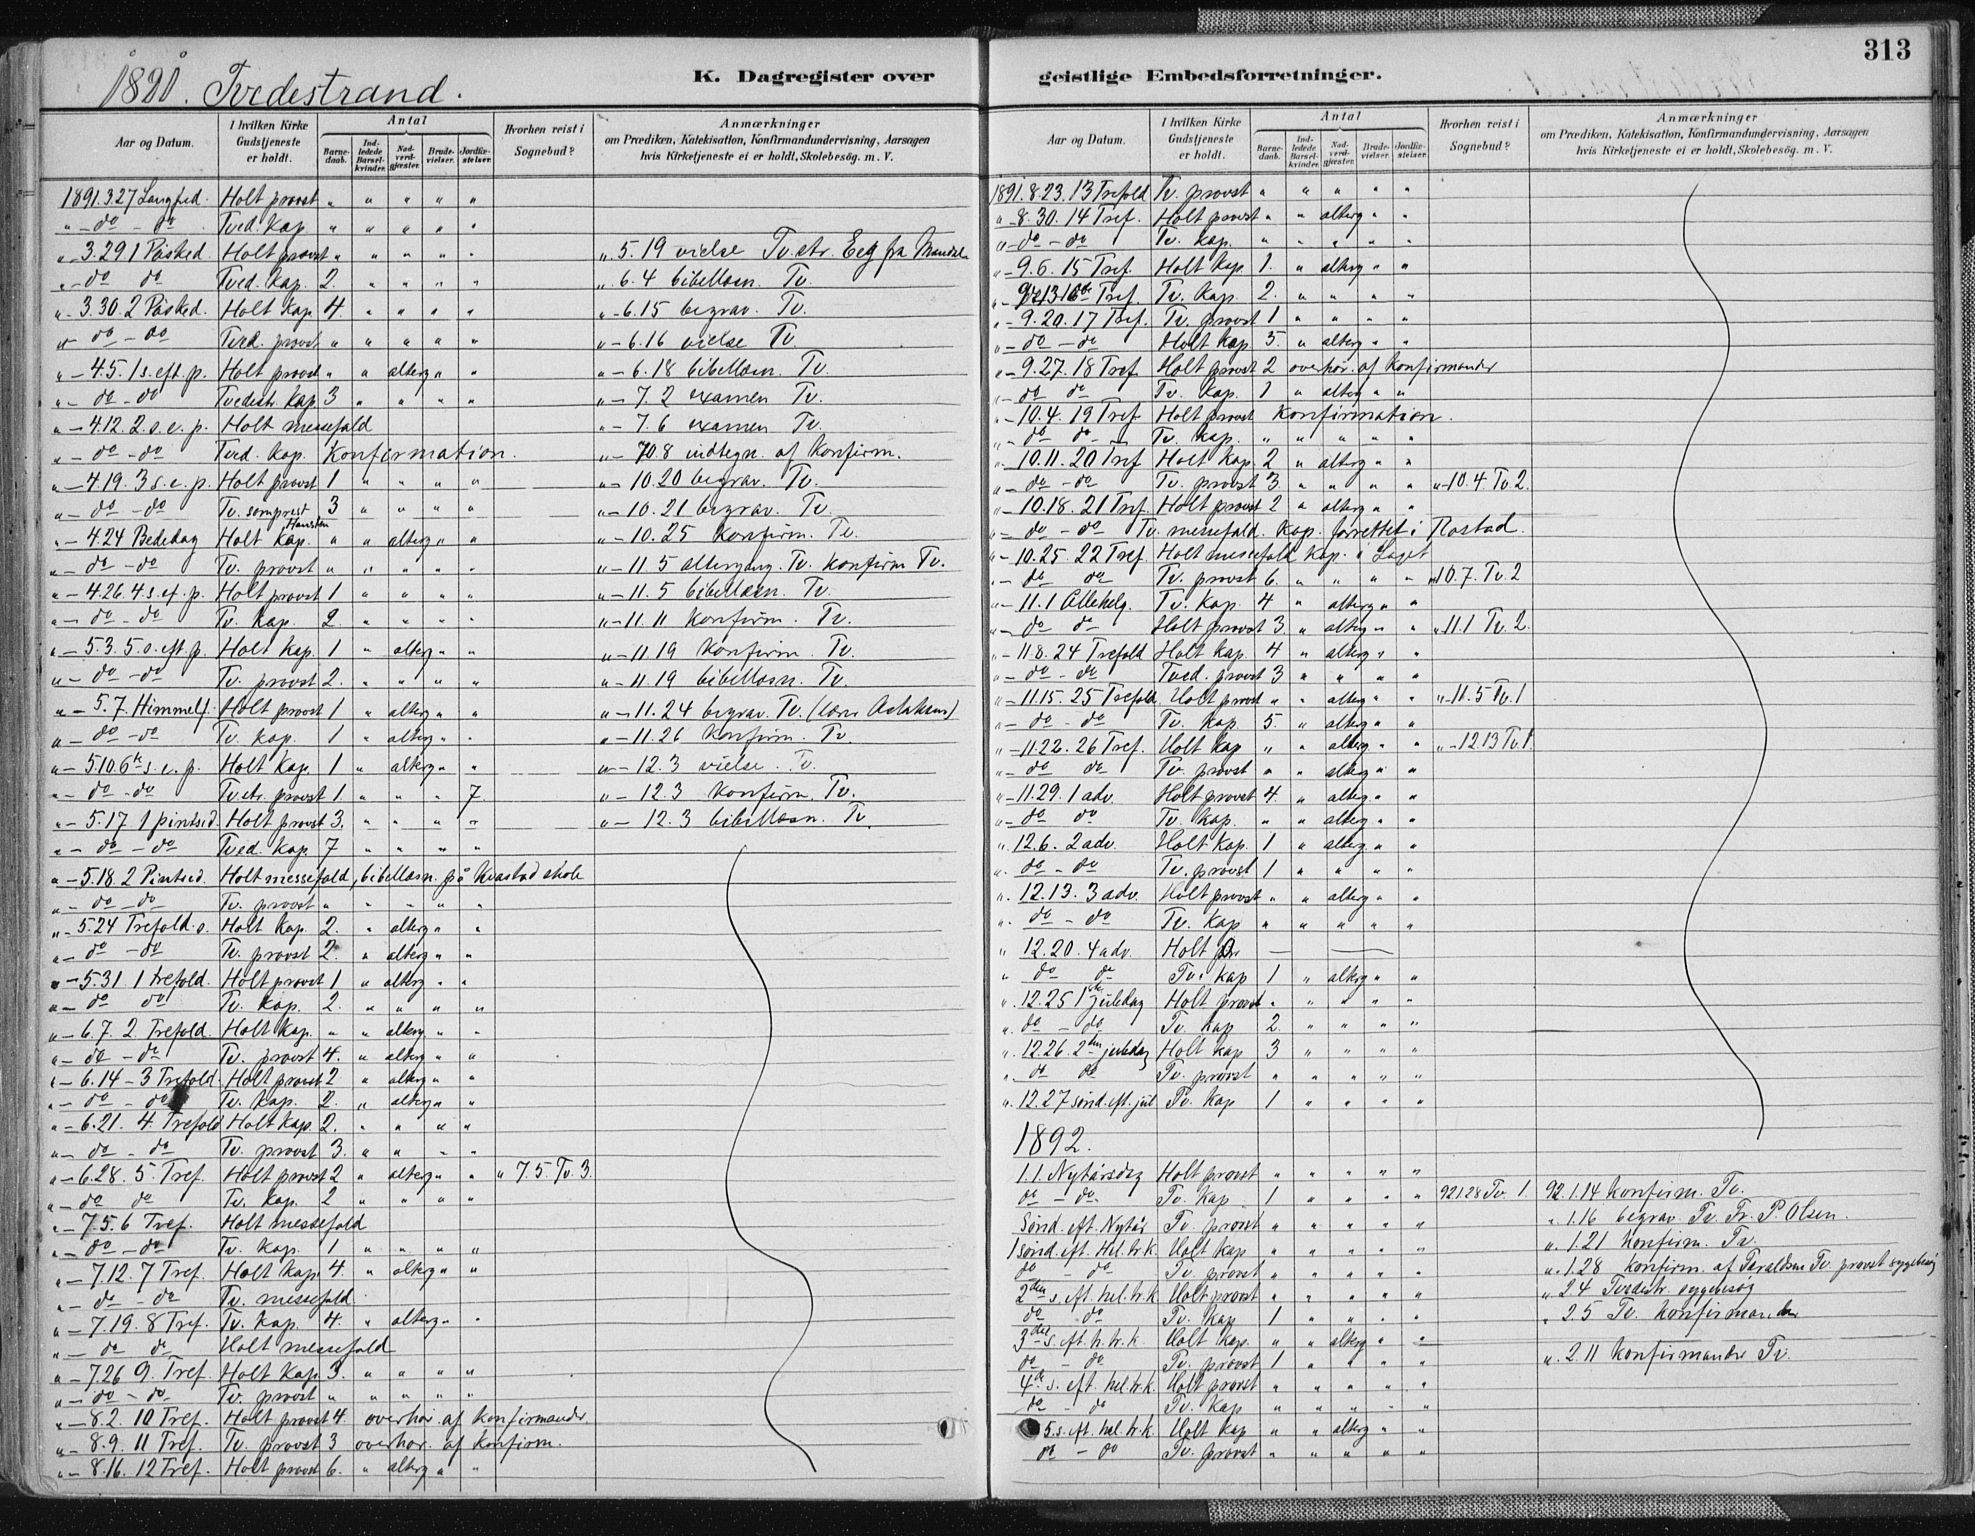 313
1891. Tvedestrand.
K. Dagregister over geistlige Embedsforretninger.
Aar og Datum.
I hvilken Kirke Gudstjeneste er holdt.
Antal
Barnedaab.
Indledede Barselkvinder.
Nadverdgjæster.
Brudevielser.
Jordfæstelser.
Hvorhen reist i Sognebud?
Anmærkninger
om Prædiken, Katekisation, Konfirmandundervisning, Aarsagen
hvis Kirketjeneste ei er holdt, Skolebesøg. m. V.
1891. 3.27 Langfred. Holt provst " " " " "
" - do - do Tved. Kap " " " " "
" - 3.29 1 Påsked. Holt provst " " " " " " 5.19 vielse Tv.str. Eeg fra Mandal
" - do do Tved. Kap. 2. " " " " " 6.4 bibellæsn. Tv.
" - 3.30. 2 Påsked. Holt Kap. 4. " " " " " - 6.15 begrav. Tv.
" - do - do Tved. provst " " " " " " - 6.16 vielse Tv.
" - 4.5. 1 s. eft. p. Holt provst " " alterg " " " - 6.18 bibellæsn. Tv.
" - do - do Tvedestr. Kap 3 " " " " " - 7.2 examen Tv.
" - 4.12. 2. s. e. p. Holt messefald " - 7.6 examen Tv.
" - do - do Tved. Kap. Konfirmation. " - 7.8 indtegn. af Konfirm.
" - 4.19. 3 s. e. p. Holt provst 1 " " " " " - 10.20 begrav. Tv.
" - do - do Tv. somprest Hansten 3 " " " " " - 10.21 begrav. Tv.
" - 4.24 Bededag Holt Kap. " " alterg " " " - 10.25 Konfirm. Tv.
" - do - do Tv. provst " " " " " " - 11.5 altergang. Tv. Konfirm Tv.
" - 4.26. 4 s. ef. p. Holt provst 1 " " " " " - 11.5 bibellæsn. Tv.
" - do - do Tv. Kap. 2. " " " " " - 11.11 Konfirm. Tv.
" - 5.3. 5. s. eft. p. Holt Kap. 1 " alterg " " " - 11.19 Konfirm. Tv.
" - do - do Tv. provst 2. " " " " " - 11.19 bibellæsn. Tv.
" - 5.7. Himmelf. Holt provst 1 " alterg " " " - 11.24 begrav. Tv.
" - do - do Tv. Kap. 1 " alterg " " " - 11.26 Konfirm. Tv.
" - 5.10. 6te s. e. p. Holt Kap. 1 " alterg " " " - 12.3 vielse. Tv.
" - do - do Tv.str. provst 1 " " " 7. " - 12.3 Konfirm. Tv.
" - 5.17 1 pintsed. Holt provst 3. " " " " " - 12.3 bibellæsn. Tv.
" - do - do Tved. Kap. 7 " " " "
" - 5.18 2 Pintsed. Holt messefald, bibellæsn. på Kvastad skole
" - do - do Tv. provst " " " " "
" - 5.24 Trefold. s. Holt Kap. 2. " alterg " "
" - do - do Tv. provst 2. " alterg " "
" - 5.31 1 trefold. Holt provst 1 " alterg " "
" - do do Tv. Kap. 2. " " " "
" - 6.7. 2. Trefold. Holt Kap. " " alterg " "
" - do - do Tv. provst 4. " alterg " "
" - 6.14 - 3 Trefold. Holt provst 2 " alterg " "
" - do - do Tv. Kap. 2. " alterg " "
" - 6.21. 4. Trefold Holt Kap. 2. " " " "
" - do - do Tv. provst 3. " " " "
" - 6.28. 5. Tref. Holt provst 2 " alterg " " " 7.5. Tv. 3.
" - do do Tv. Kap. 2 " " " "
" - 7.5. 6 Tref. Holt messefald
" - do - do Tv. Kap. 1 " " " "
" - 7.12. 7 Tref. Holt Kap. 4. " alterg " "
" - do - do Tv. messefald.
" - 7.19. 8 Tref. Tv. Kap. 4. " alterg " "
" - do do Holt messefald
" - 7.26 9. Tref. Holt Kap. 3. " " " "
" - do - do Tv. provst " " " " "
" - 8.2. 10 Tref. Holt provst 4. overhør af konfirmander.
" - 8.9. 11 Tref. Tv. provst 3 overhør. af konfirm.
" - 8.16. 12 Tref. Holt provst 6. " alterg " "
Aar og Datum.
I hvilken Kirke Gudstjeneste er holdt.
Antal
Barnedaab.
Indledede Barselkvinder.
Nadverdgjæster.
Brudevielser.
Jordfæstelser.
Hvorhen reist i Sognebud?
Anmærkninger
om Prædiken, Katekisation, Konfirmandundervisning, Aarsagen
hvis Kirketjeneste ei er holdt, Skolebesøg. m. V.
1891. 8.23. 13 Trefold Tv. provst " " " " "
" - 8.30. 14 Tref. Holt provst " " alterg " "
" - do - do Tv. Kap. " " " " "
" - 9.6. 15 Tref. Holt Kap. 1. " alterg " "
" - 9.13 16de Tref. Tv. Kap. 2. " " " "
" - 9.20. 17 Tref. Tv. provst 1 " " " "
" - do - do Holt Kap. 5. " alterg " "
" - 9.27. 18 Tref Holt provst 2 overhør. af Konfirmander
" - do do Tv. Kap. 1 " alterg " "
" - 10.4. 19 Tref Holt provst Konfirmation.
" - do do Tv. Kap. " " " " "
" - 10.11. 20 Tref Holt Kap. 2 " alterg " "
" - do - do Tv. provst 3. " " " " " - 10.4. Tv 2.
" - 10.18. 21 Tref. Holt provst 2 " alterg " "
" - do - do Tv. messefald. Kap. forrettet i Flostad.
" - 10.25. 22 Tref. Holt messefald Kap. i Laget
" - do do Tv. provst 6. " " " " " 10.7. Tv. 2
" - 11.1 Allehelg. Tv. Kap. 4 " alterg " "
" - do do Holt provst 3. " alterg " " " 11.1 Tv. 2.
" - 11.8. 24 Trefold Holt Kap. 4 " alterg " "
" - do - do Tved. provst 3 " " " "
" - 11.15. 25 Trefold Holt provst " " alterg " " " - 11.5 Tv. 1
" - do - do Tv. Kap. 5. " alterg " "
" - 11.22. 26 Tref. Holt Kap " " alterg " " " - 12.13 Tv. 1
" - do do Tv. provst " " alterg " "
" - 11.29. 1 adv. Holt provst 4. " alterg " "
" - do do Tv. Kap. " " alterg " "
" 12.6. 2 adv. Holt Kap. 1 " alterg " "
" do - do Tv. provst 1 " " " "
" 12.13. 3 adv. Holt provst " " alterg " "
" do - do Tv. Kap " " " " "
" 12.20. 4 adv. Holt — —
" do do Tv. Kap 1 " alterg " "
" 12.25 1ste juledag Holt provst " " " " "
" do - do Tv. Kap 2. " " " "
" 12.26. 2den juledag Holt Kap 3 " " " "
" do do Tv. provst " " " " "
" 12.27 sønd. eft. jul Tv. Kap 1 " " " "
1892.
1.1. Nytårsdag Holt provst " " " " "
do - do Tv. Kap 1 " " " " 92 1.28 Tv. 1. 92. 1.14 Konfirm. Tv.
Sønd. eft. Nytår Tv. provst " " " " " " 1.16 begrav. Tv. Fr. P. Olsen.
1 sønd. eft. Hel. tr. k. Holt Kap " " " " " " 1.21 Konfirm. Tv.
do - do Tv. provst " " " " " " 1.28 Konfirm. af Taraldsen Tv. provst sygebesøg
2den s. eft. hel. tr. k. Holt provst " " " " " " 2.4 Tvedestr. sygebesøg
do do Tv. Kap 1 " " " " " 2.5 Tv. Konfirmander
3die s. eft. h. tr. k Holt Kap. " " alterg " "
do - do Tv. provst 1 " " " " " 2.11 Konfirmander Tv.
4de s. eft. hel. tr. k. Holt provst " " " " "
do - do Tv. Kap " " " " "
5. s. eft. hel. tr. k. Holt Kap " " alterg " "
do - do Tv. provst " " " " "